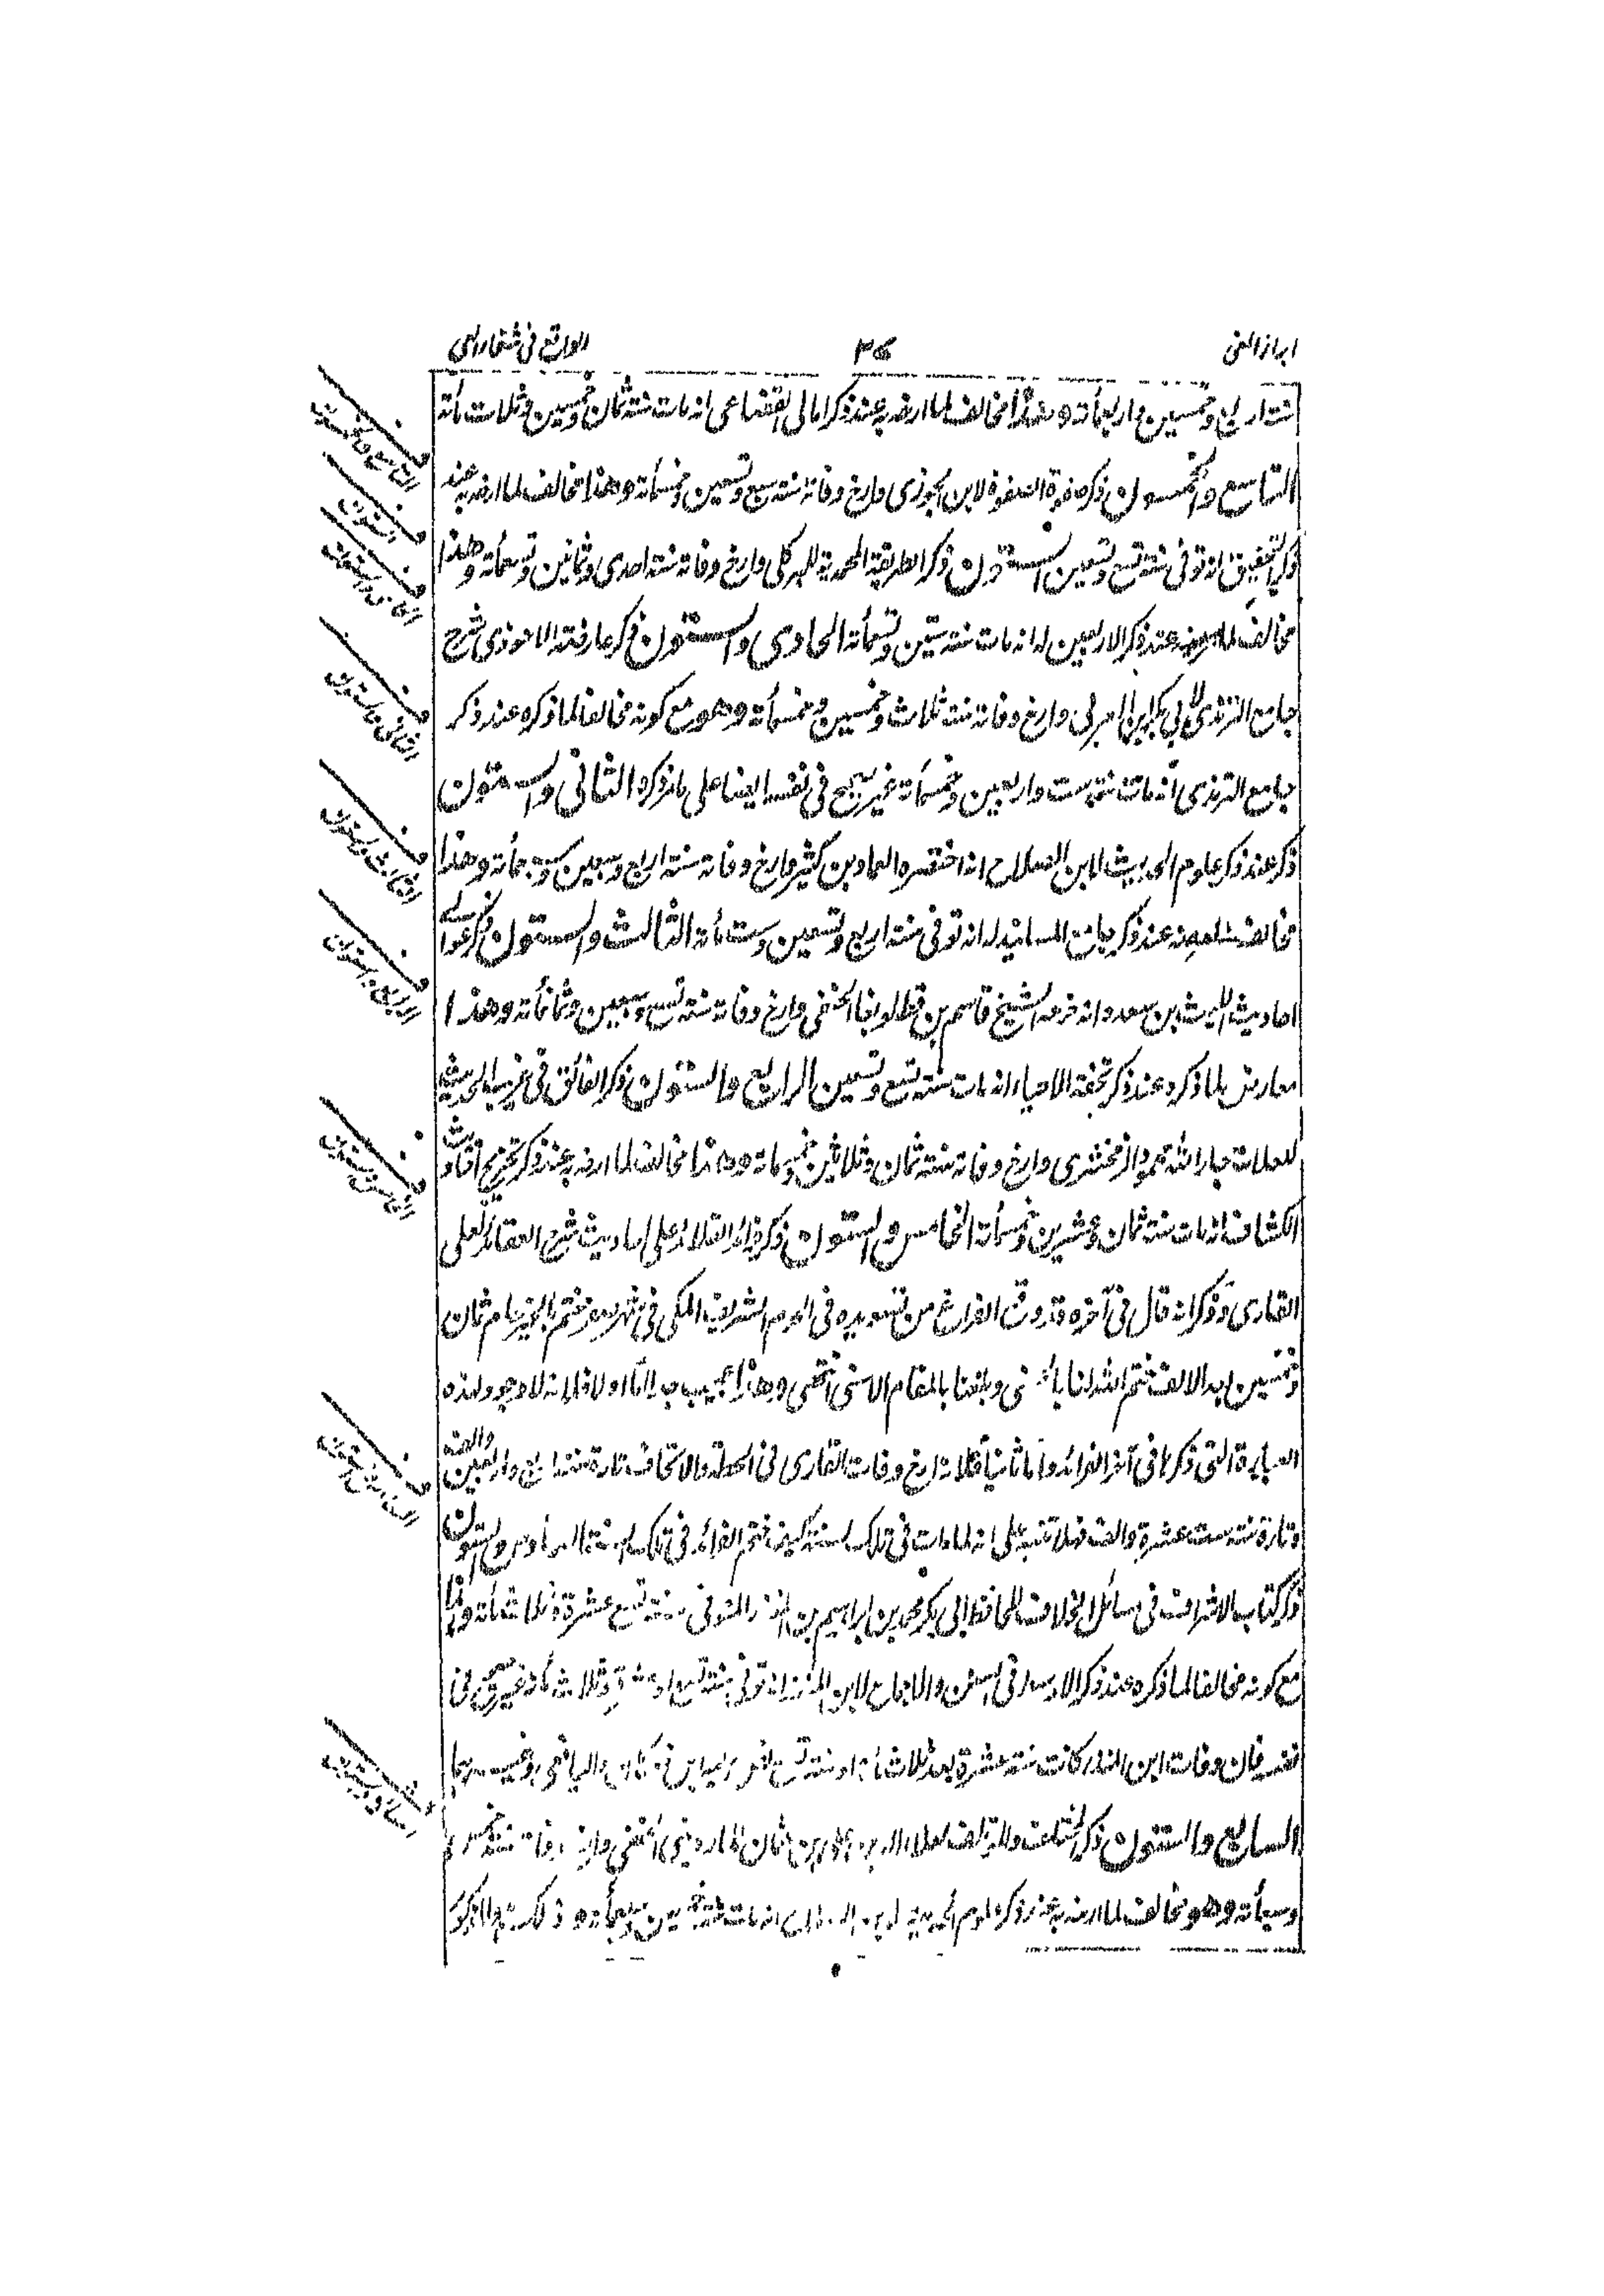 ابراز الغي
٣٤
الواقع في شفاء العي
سنة اربع وخمسين واربعمائة وهذا مخالف لما ارخه به عند ذكر امالي القضاعي انه مات سنة ثمان وخمسين وثلاث مائة
التاسع والخمسون ذكر صفوة الصفوة لابن الجوزي وارخ وفاته سنة سبع وتسعين وخمسمائة وهذا مخالف لما ارخه به عند
ذكر التحقيق انه توفى سنة تسع وتسعين الستون ذكر الطريقة المحمدية للبركلي وارخ وفاته سنة احدى وثمانين وتسعمائة وهذا
مخالف لما عند ذكر الاربعين له انه مات سنة ستين وتسعمائة الحادي والستون ذكر عارضة الاحوذي شرح
جامع الترمذي لابي بكر ابن العربي وارخ وفاته سنة ثلاث وخمسين وخمسمائة وهو مع كونه مخالفا لما ذكره عند ذكر
جامع الترمذي انه مات سنة ست واربعين وخمسمائة غير صحيح في نفسه ايضا على ما نذكره الثاني والستون
ذكر عند ذكر علوم الحديث لابن الصلاح انه اختصره العماد بن كثير وارخ وفاته سنة اربع وسبعين وسبعمائة وهذا
مخالف عند ذكر جامع المسانيد له انه توفى سنة اربع وتسعين وست مائة الثالث والستون ذكر عوالي
احاديث الليث بن سعد وانه خرجه الشيخ قاسم بن قطلوبغا الحنفي وارخ وفاته سنة تسع وسبعين وثمانمائة وهذا
معارض لما ذكره عند ذكر تحفة الاحياء انه مات سنة تسع وتسعين الرابع والستون ذكر الفائق في غريب الحديث
للعلامة جار الله محمود الزمخشري وارخ وفاته سنة ثمان وثلاثين وخمسمائة وهذا مخالف لما ارخه به عند ذكر تخريج احاديث
الكشاف انه مات سنة ثمان وعشرين وخمسمائة الخامس والستون ذكر فرائد القلائد على احاديث شرح العقائد لعلي
القاري وذكر انه قال في آخره قد وقع الفراغ من تسويده في الحرم الشريف المكي في شهر صفر ختم بالخير عام ثمان
وخمسين بعد الالف ختم الله لنا بالحسنى وبلغنا بالمقام الاسنى انتهى وهذا عجيب جدا اما اولا فلانه لا وجود لهذه
العبارة التي ذكرها في آخر الفرائد واما ثانيا فلانه ارخ وفات القاري في الحطة والاتحاف تارة سنة اربع واربعين والف
وتارة سنة ست عشرة والف فهلا تنبه على انه لما مات في تلك السنة كيف ختم الفرائد في تلك السنة السادس والستون
ذكر كتاب الاشراف في مسائل الخلاف للحافظ ابي بكر محمد بن ابراهيم بن المنذر المتوفى سنة تسع عشرة وثلاث مائة وهذا
مع كونه مخالفا لما ذكره عند ذكر الاوسط في السنن والاجماع لابن المنذر انه توفى سنة تسع او عشرة وثلاث مائة غير صحيح في
نفسه فان وفات ابن المنذر كانت سنة عشرة بعد ثلاث مائة او سنة تسع واليافعي وغيرهما
السابع والستون ذكر المختلف والمؤتلف لعلاء الدين علي بن عثمان المارديني الحنفي وارخ وفاته سنة خمسين
وسبعمائة وهو مخالف لما ارخه به عند ذكر علوم الحديث لابن الصلاح انه مات سنة وسبعمائة و
التاسع والخمسون
الستون
الحادي والستون
الثاني والستون
الثالث والستون
الرابع والستون
الخامس والستون
السادس والستون
السابع والستون